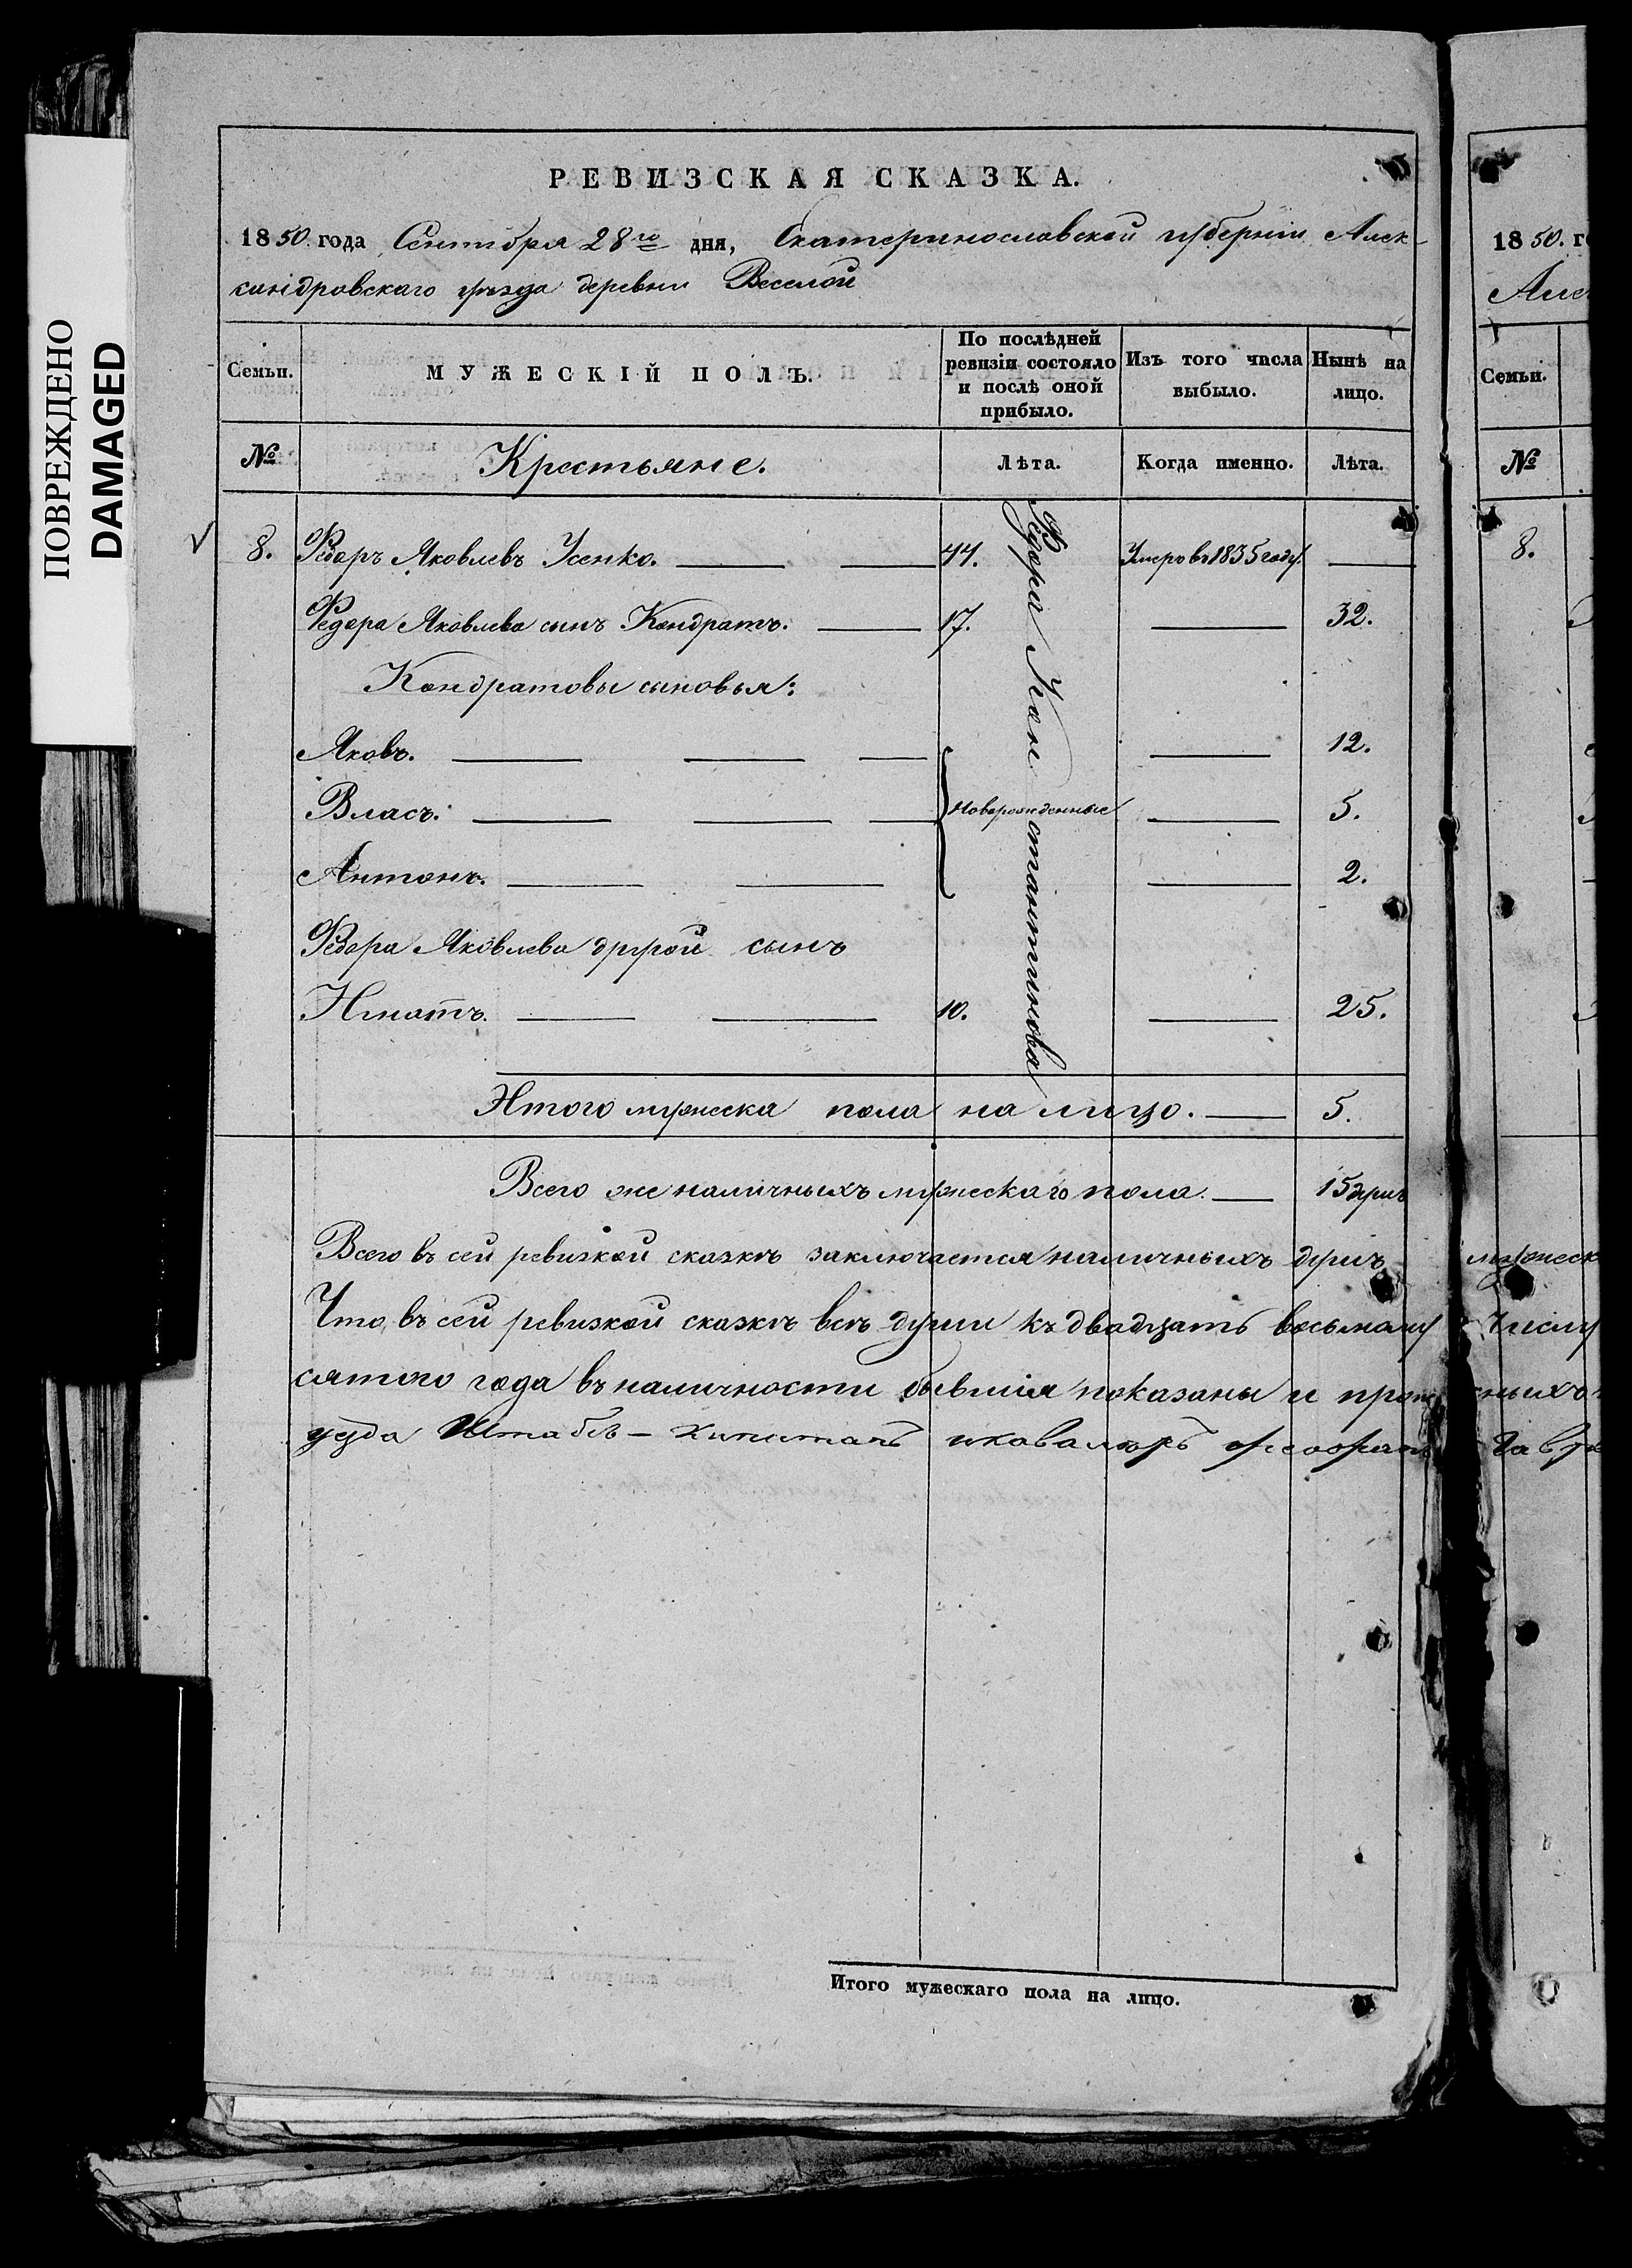 ПОВРЕЖДЕНО
DAMAGED
РЕВИЗСКАЯ СКАЗКА.
1850. года Сентября 28го дня, Екатеринославской губерніи Алек-
сандровскаго уѣзда деревни Веселой
Семьи.
МУЖЕСКІЙ ПОЛЪ.
По послѣдней ревизіи состояло и послѣ оной прибыло.
Изъ того числа выбыло.
Нынѣ на лицо.
№
Крестьяне.
Лѣта.
Когда именно.
Лѣта.
8. Федоръ Яковлевъ Усенко. 44. Умеръ въ 1835 году.
Федора Яковлева сынъ Кондратъ. 17. 32.
Кондратовы сыновья:
Яковъ. 12.
Власъ. Новорожденные 5.
Антонъ. 2.
Федора Яковлева другой сынъ
Игнатъ. 10. 25.
Константинова
Итого мужеска пола на лицо. 5.
Всего же наличныхъ мужескаго пола. 15 душъ
Всего въ сей ревизкой сказкѣ заключается наличныхъ душъ
Что въ сей ревизкой сказкѣ всѣ души къ двадцать восьмому
сятого года въ наличности бывшія показаны и
уезда Штабсъ-Капитанъ икавалеръ
Итого мужескаго пола на лицо.
1850. г
Але
Семьи.
№
8.
мужеск
числу